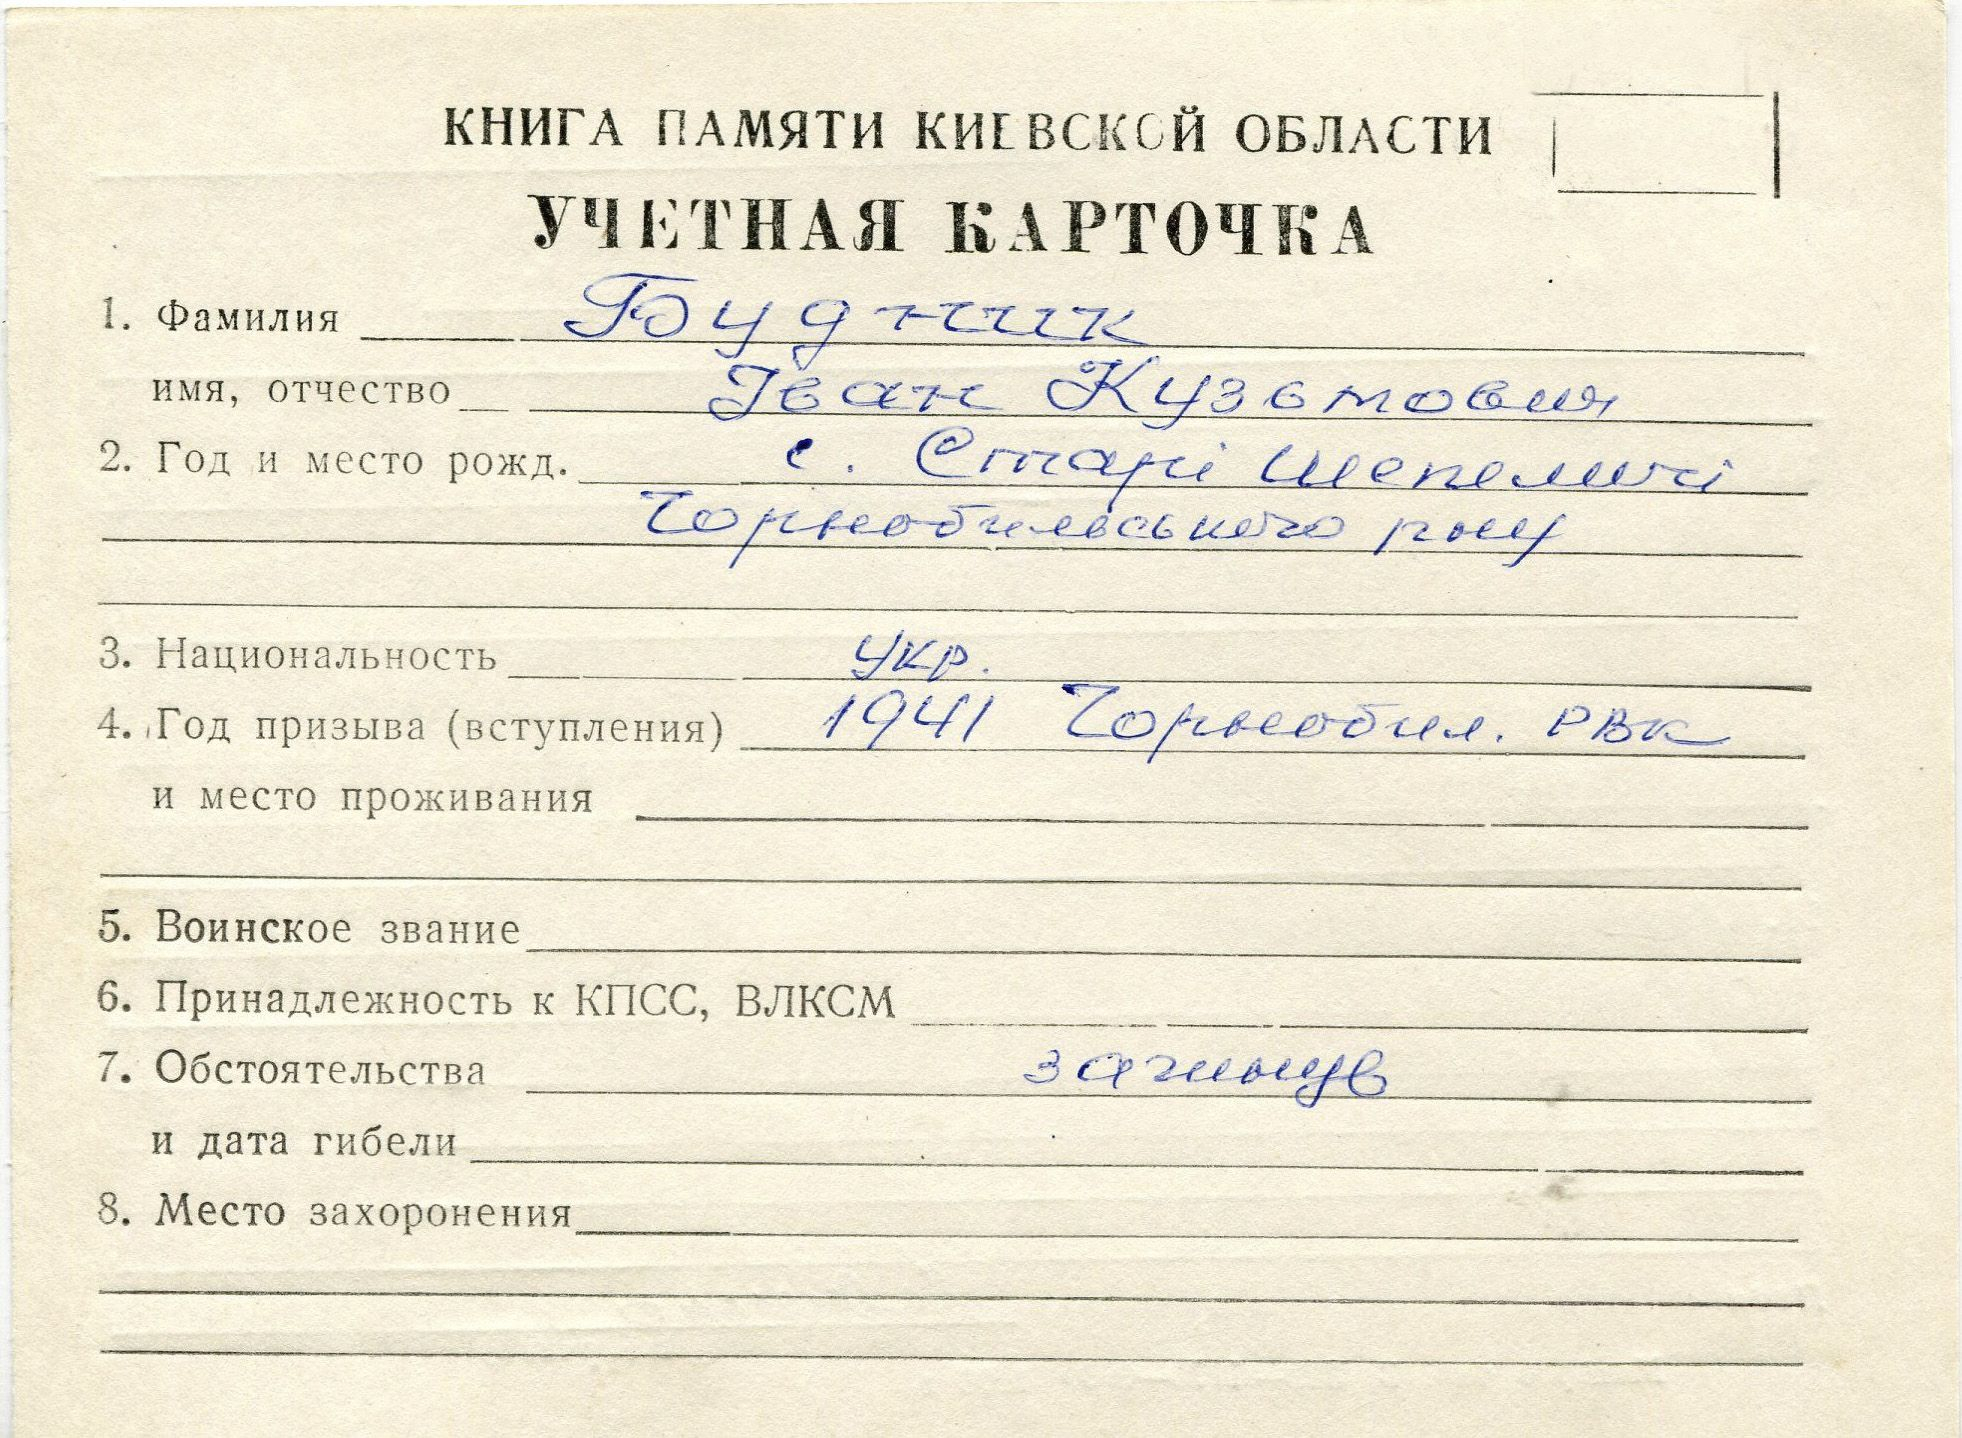 КНИГА ПАМЯТИ КИЕВСКОЙ ОБЛАСТИ
УЧЕТНАЯ КАРТОЧКА
1. Фамилия Будник
имя, отчество Іван Кузьмович
2. Год и место рожд. с. Старі Шепеличі
Чорнобильського р-ну
3. Национальность укр.
4. Год призыва (вступления) 1941 Чорнобил. РВК
и место проживания
5. Воинское звание
6. Принадлежность к КПСС, ВЛКСМ
7. Обстоятельства загинув
и дата гибели
8. Место захоронения